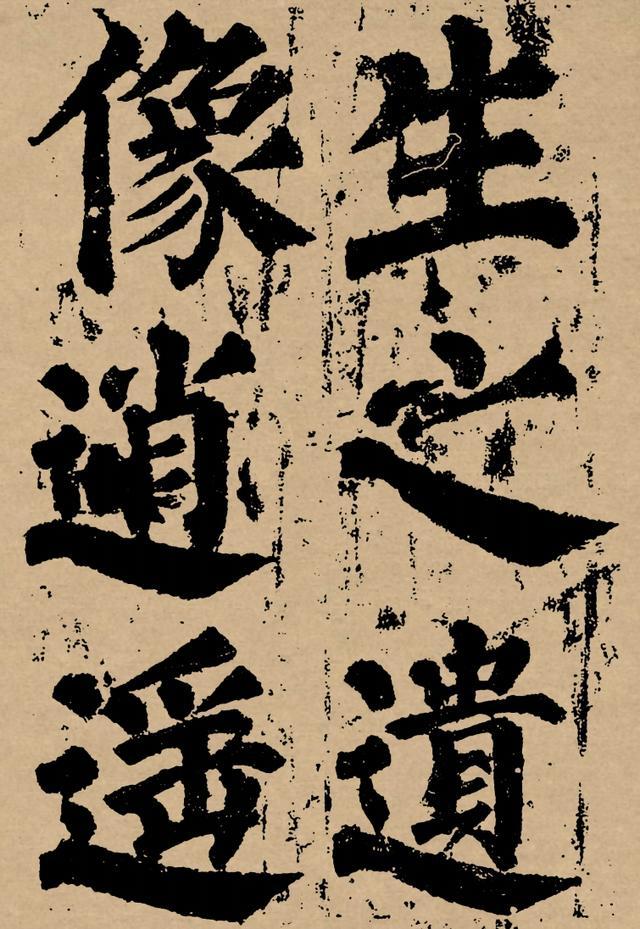 生之遺
像逍遥